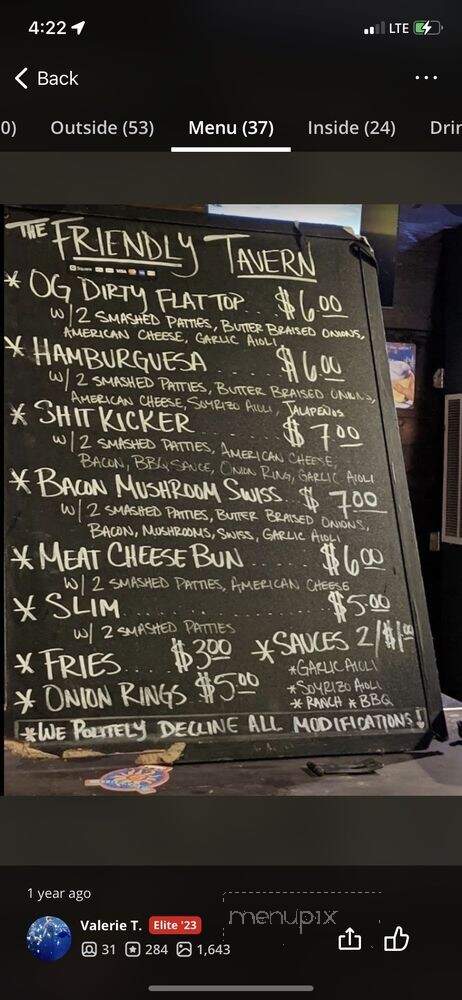 4:22
LTE
Back
0)
Outside (53)
Menu (37)
Inside (24)
Drin
THE FRIENDLY TAVERN
Square VISA
* OG DIRTY FLAT TOP.. $6.00
W/ 2 SMASHED PATTIES, BUTTER BRAISED ONIONS,
AMERICAN CHEESE, GARLIC AIOLI
* HAMBURGUESA .... $6.00
W/ 2 SMASHED PATTIES, BUTTER BRAISED ONIONS,
AMERICAN CHEESE, SOYRIZO AIOLI, JALAPEÑOS
* SHIT KICKER ........ $7.00
W/ 2 SMASHED PATTIES, AMERICAN CHEESE,
BACON, BBQ SAUCE, ONION RING, GARLIC AIOLI
* BACON MUSHROOM SWISS.. $7.00
W/ 2 SMASHED PATTIES, BUTTER BRAISED ONIONS,
BACON, MUSHROOMS, SWISS, GARLIC AIOLI
* MEAT CHEESE BUN ...... $6.00
W/ 2 SMASHED PATTIES, AMERICAN CHEESE
* SLIM ................ $5.00
W/ 2 SMASHED PATTIES
* FRIES.... $3.00
* ONION RINGS $5.00
* SAUCES 2/$1.00
* GARLIC AIOLI
* SOYRIZO AIOLI
* RANCH * BBQ
* WE POLITELY DECLINE ALL MODIFICATIONS!
1 year ago
Valerie T. Elite '23
31 284 1,643
menupix